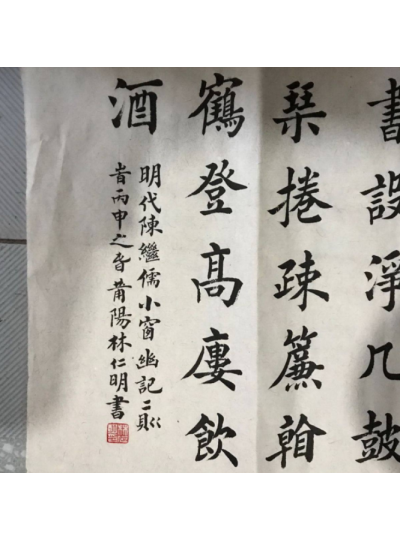 書設淨几鼓
琹捲疎簾看
鶴登高廔飲
酒
明代陳繼儒小窗幽記二則
旹丙申之春莆陽林仁明書